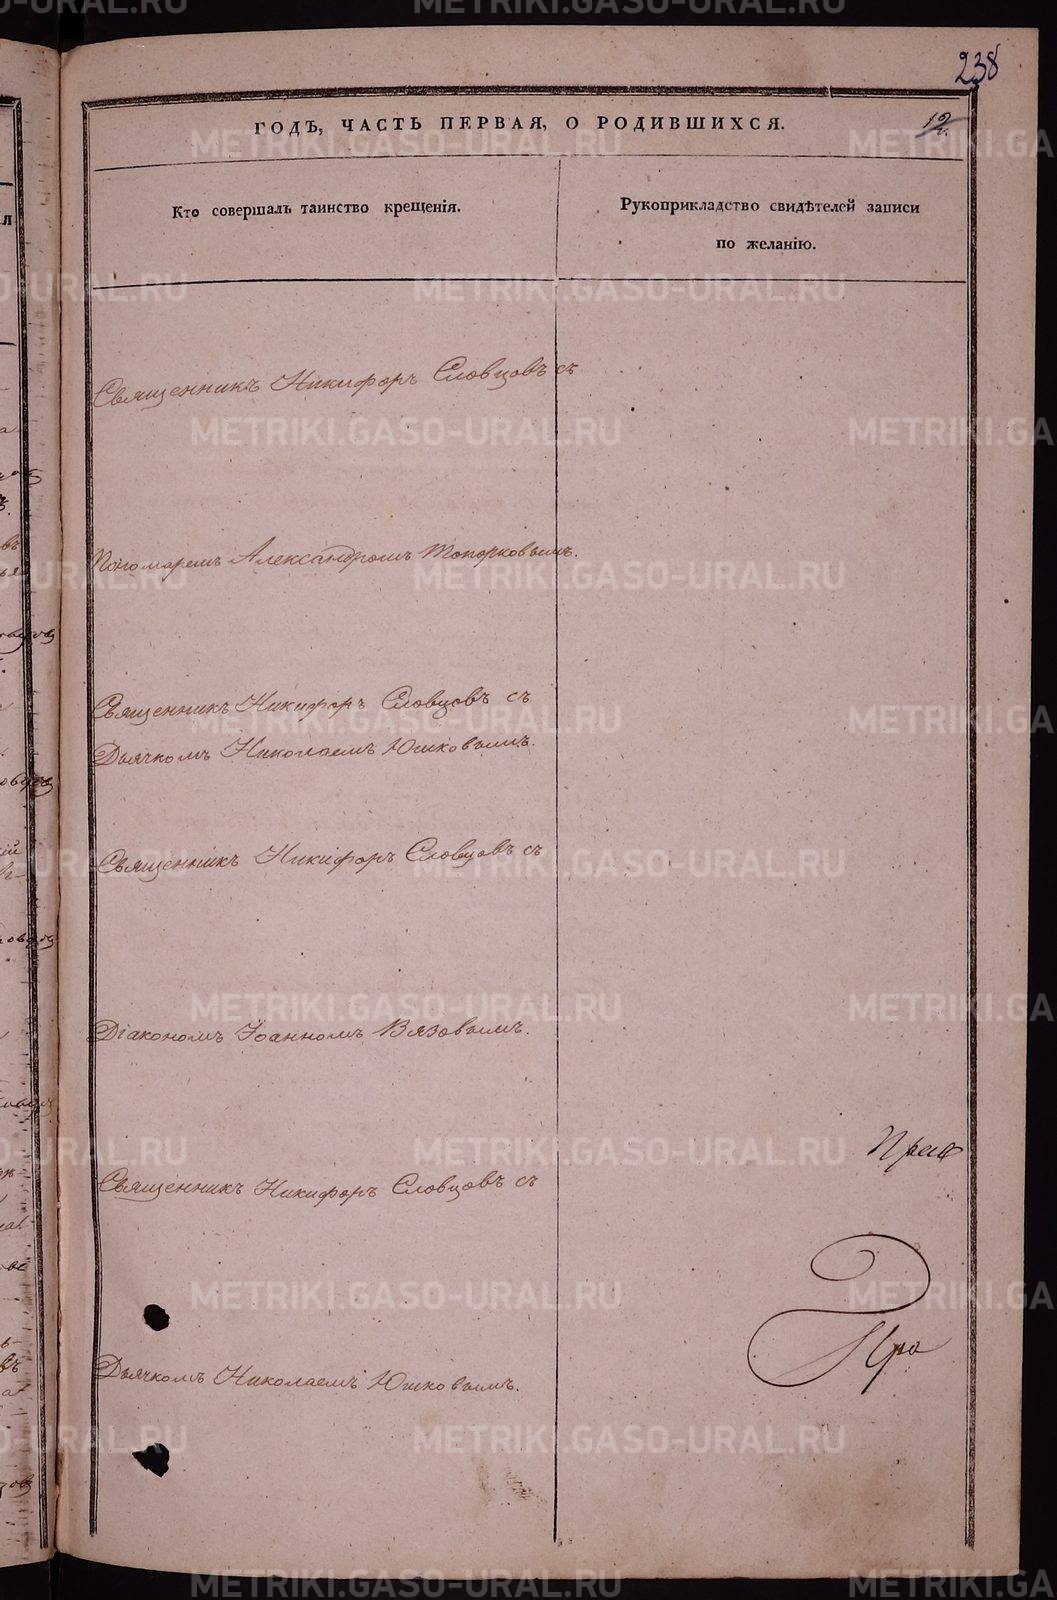 238
ГОДЪ, ЧАСТЬ ПЕРВАЯ, О РОДИВШИХСЯ.
Кто совершалъ таинство крещенія.
Рукоприкладство свидѣтелей записи
по желанію.
Священникъ Никифоръ Словцовъ съ
Пономаремъ Александромъ Топорковымъ.
Священникъ Никифоръ Словцовъ съ
Дьячкомъ Николаемъ Юшковымъ.
Священникъ Никифоръ Словцовъ съ
Діакономъ Іоанномъ Вязовымъ.
Священникъ Никифоръ Словцовъ съ
Дьячкомъ Николаемъ Юшковымъ.
METRIKI.GASO-URAL.RU